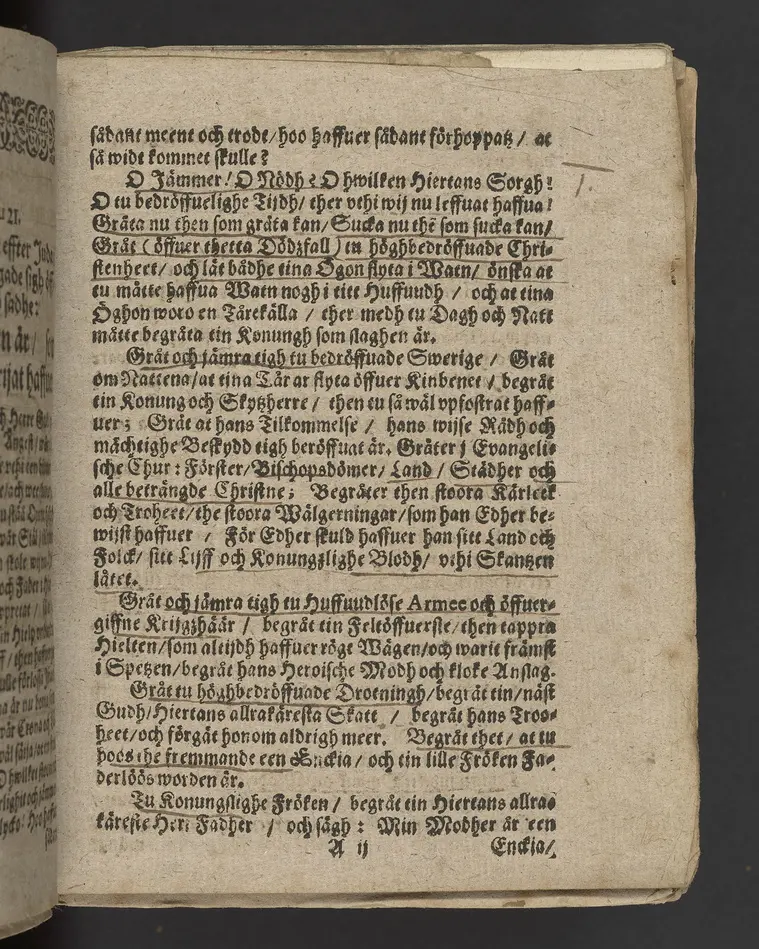 sådant meent och trodt/hoo haffuer sådant förhoppatz / at
så widt kommet skulle?
O Jämmer! O Nödh! O hwilken Hiertans Sorgh!
O tu bedröffuelighe Tijdh/ ther vthi wij nu leffuat haffua!
Gråta nu then som gråta kan/ Sucka nu thē som sucka kan/
Gråt (öffuer thetta Dödzfall) tu höghbedröffuade Chri-
stenheet/ och låt bådhe tina Ögon flyta i Watn/ önska at
tu måtte haffua Watn nogh i titt Huffuudh / och at tina
Öghon woro en Tårekälla / ther medh tu Dagh och Natt
måtte begråta tin Konungh som slaghen är.
Gråt och jämra tigh tu bedröffuade Swerige / Gråt
om Nattena/at tina Tårar flyta öffuer Kinbenet / begråt
tin Konung och Skytzherre / then tu så wäl vpfostrat haff-
uer; Gråt at hans Tilkommelse / hans wijse Rådh och
mächtighe Beskydd tigh beröffuat är. Gråter j Evangeli-
sche Chur: Förster/Bischopsdömer/ Land / Städher och
alle beträngde Christne; Begråter then stoora Kärleek
och Troheet/the stoora Wälgerningar/som han Edher be-
wijst haffuer / För Edher skuld haffuer han sitt Land och
Folck/ sitt Lijff och Konungzlighe Blodh/ vthi Skantzen
låtet.
Gråt och jämra tigh tu Huffuudlöse Armee och öffuer-
giffne Krijgzhäär / begråt tin Feltöffuerste/then tappra
Hielten/som altijdh haffuer rögt Wägen/och warit främst
i Spetzen/begråt hans Heroische Modh och kloke Anslag.
Gråt tu höghbedröffuade Drotningh/begråt tin/näst
Gudh/Hiertans allrakäresta Skatt / begråt hans Troo-
heet/och förgät honom aldrigh meer. Begråt thet/ at tu
hoos the fremmande een Enckia/ och tin lille Fröken Fa-
derlöös worden är.
Tu Konungslighe Fröken / begråt tin Hiertans allra-
käreste Herr Fadher / och sägh: Min Modher är een
A ij Enckia/
1.
21.